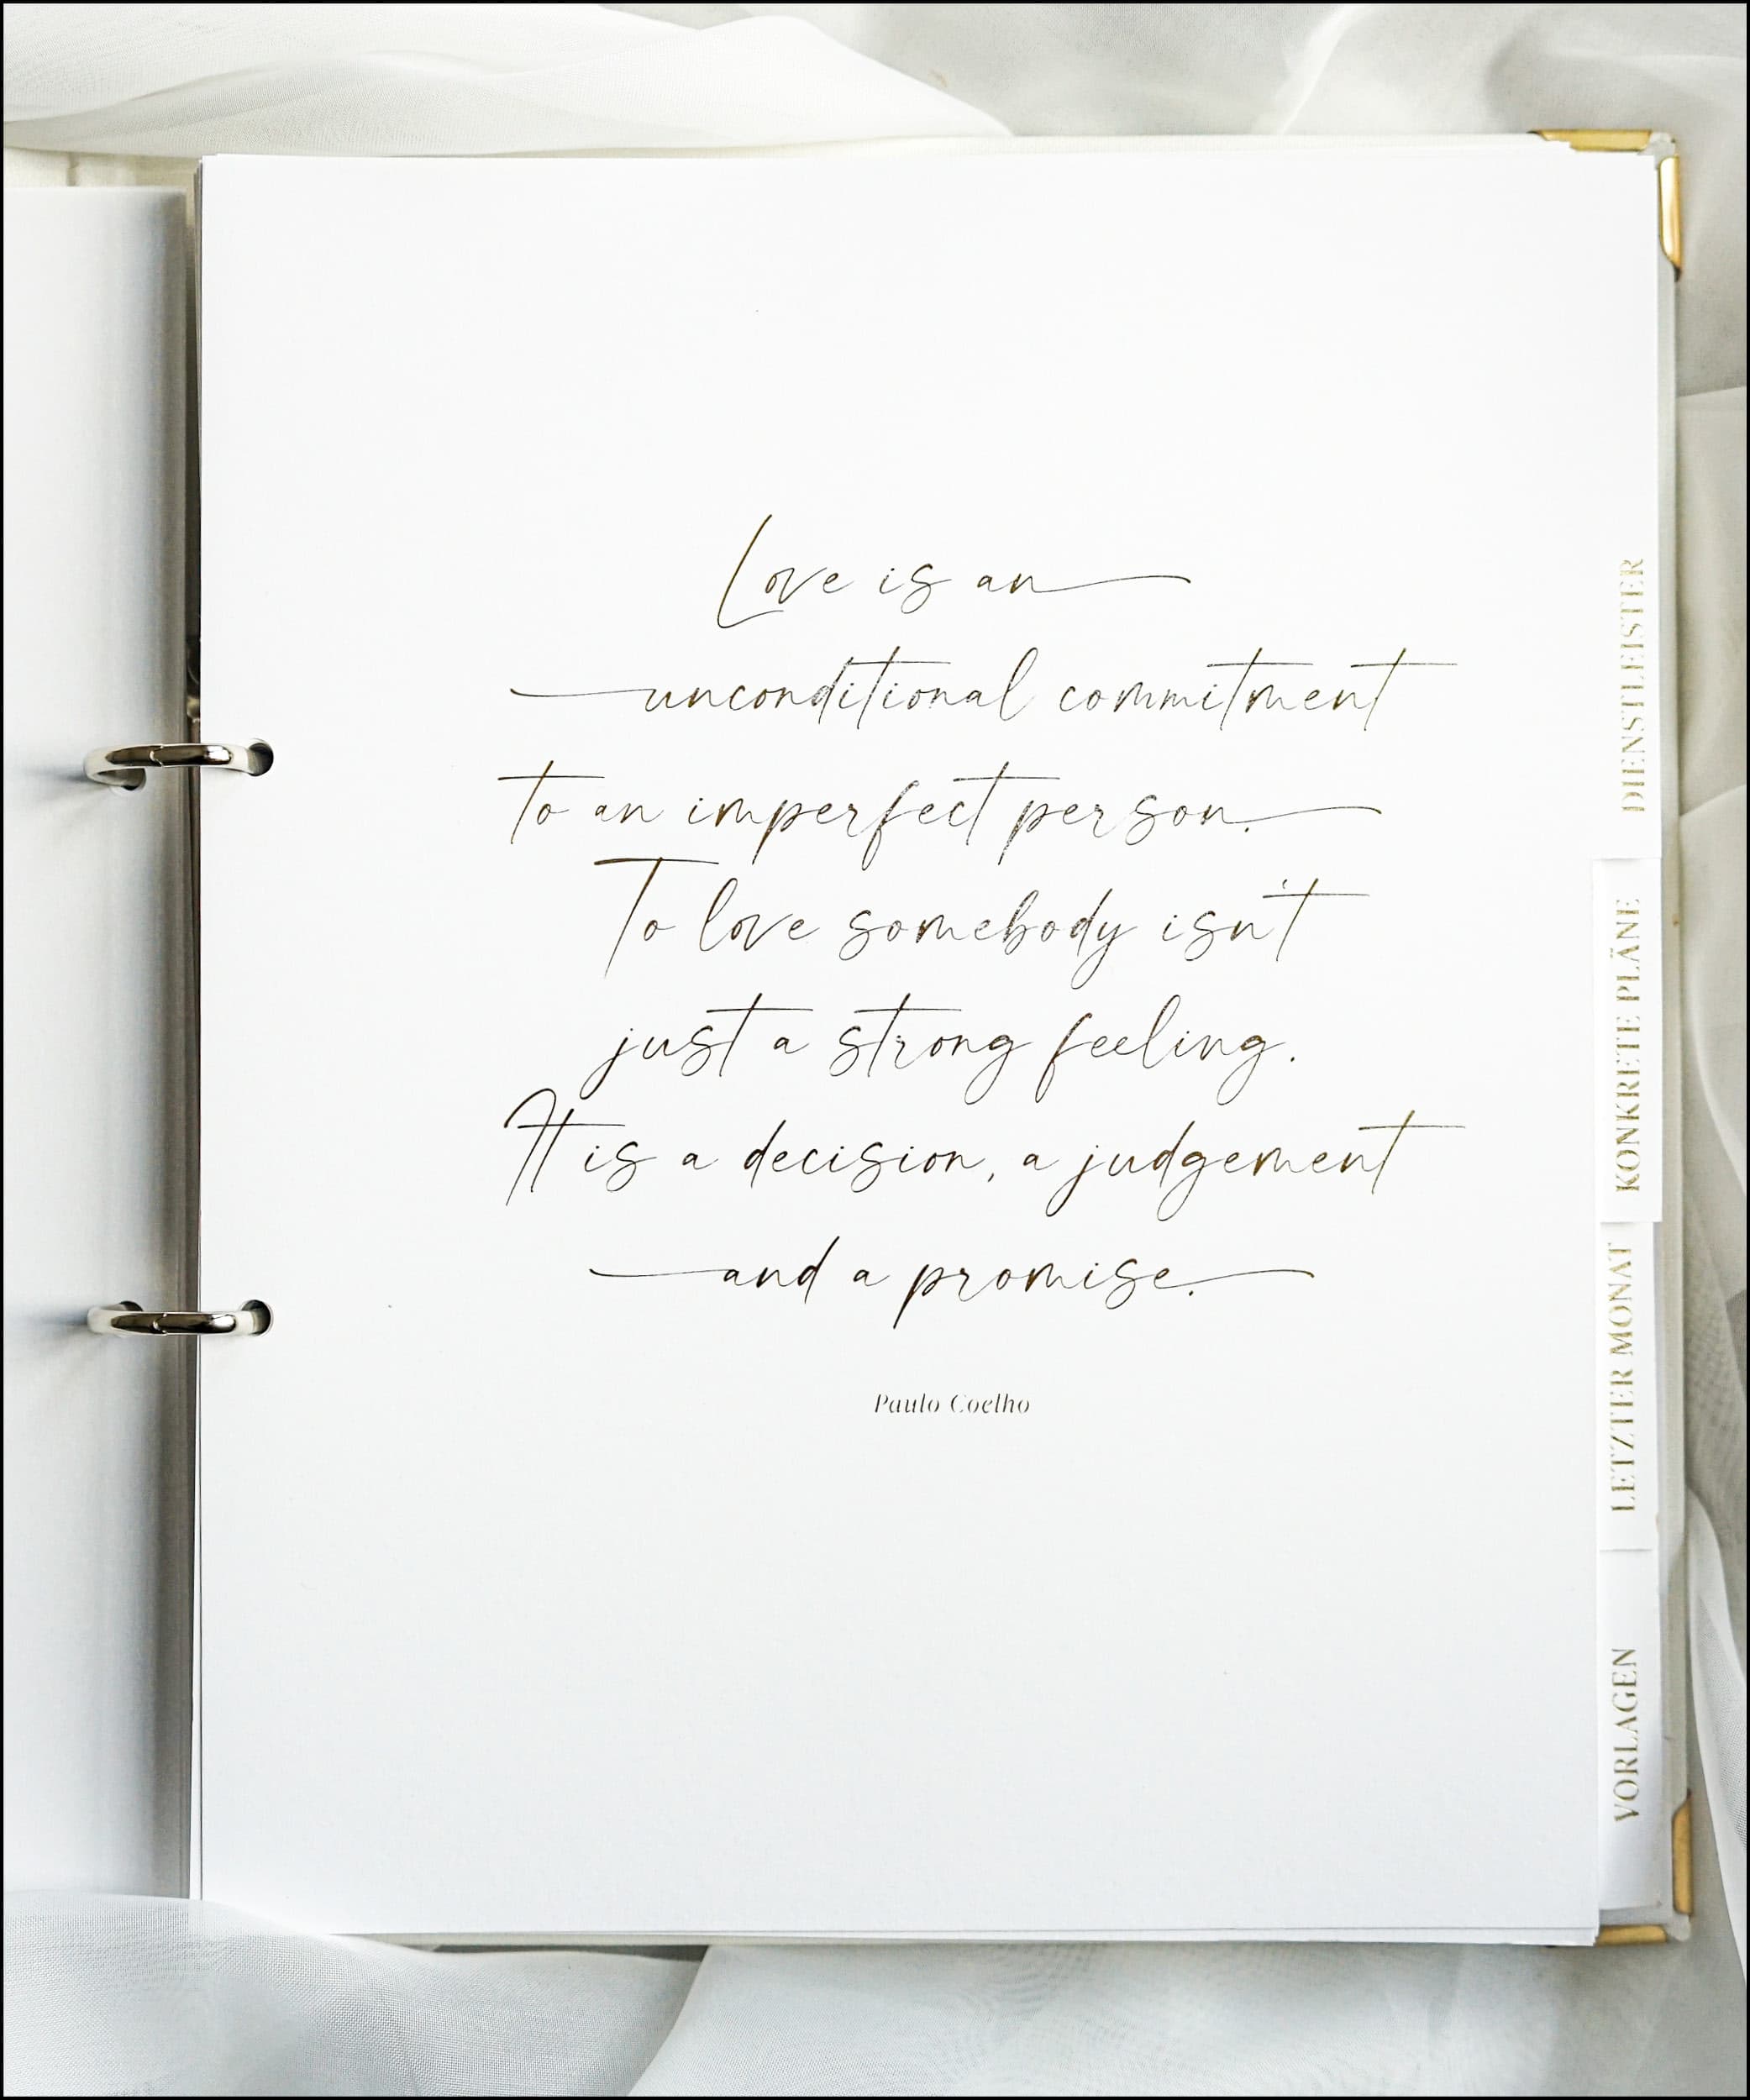 Love is an
unconditional commitment
to an imperfect person.
To love somebody isn't
just a strong feeling.
It is a decision, a judgement
and a promise.
Paulo Coelho
DIENSTLEISTER
KONKRETE PLÄNE
LETZTER MONAT
VORLAGEN